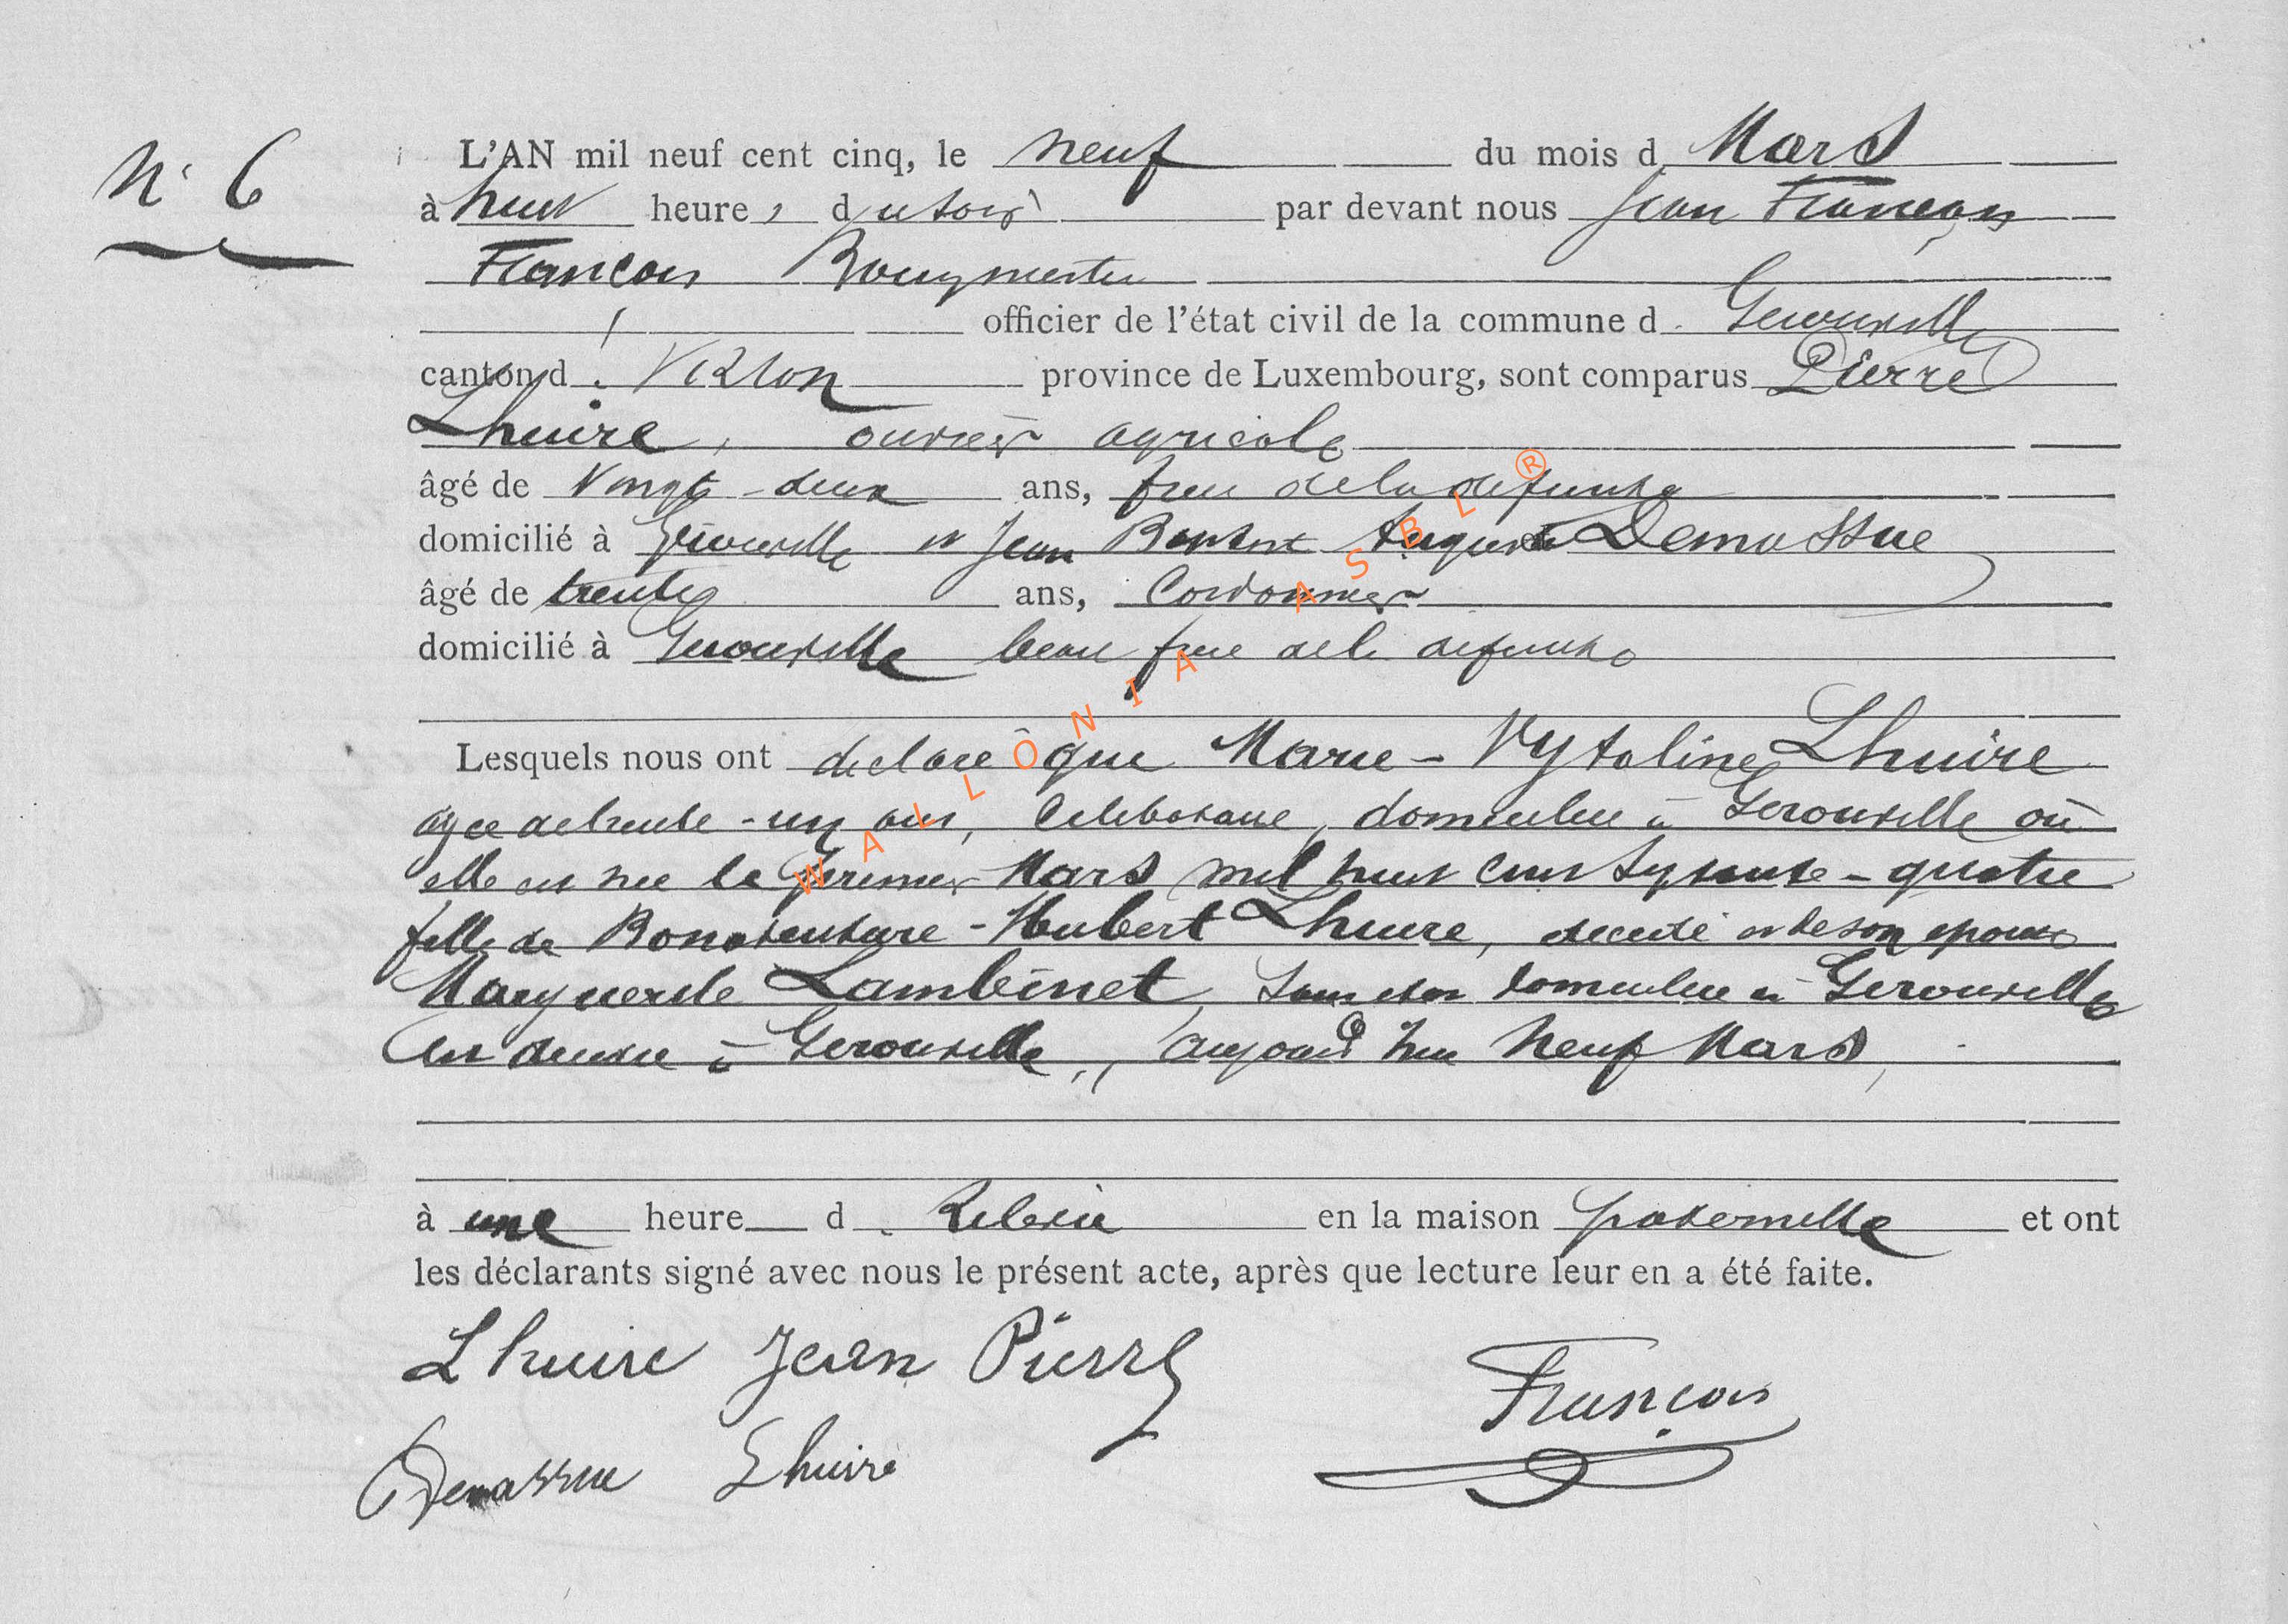 N° 6
L'AN mil neuf cent cinq, le neuf du mois d Mars
à huit heures du soir par devant nous Jean François
François Bourgmestre
officier de l'état civil de la commune d Gerouville
canton d Virton province de Luxembourg, sont comparus Pierre
Lhuire, ouvrier agricole
âgé de vingt-deux ans, frere de la defunte
domicilié à Gerouville et Jean Auguste Demassue
âgé de trente ans, Cordonnier
domicilié à Gerouville beau frere de la defunte
Lesquels nous ont declaré que Marie-Vytaline Lhuire
agee de trente-un ans, Celibataire, domiciliee à Gerouville où
elle est nee le premier Mars mil huit cent septante-quatre
fille de Bonaventure-Hubert Lhuire, decedé et de son epouse
Marguerite Lambinet, domiciliee à Gerouville
est decedee à Gerouville, aujourd'hui neuf Mars,
à une heure d relevée en la maison paternelle et ont
les déclarants signé avec nous le présent acte, après que lecture leur en a été faite.
Lhuire Jean Pierre
François
Demassue Lhuire
WALLONIA ASBL ®